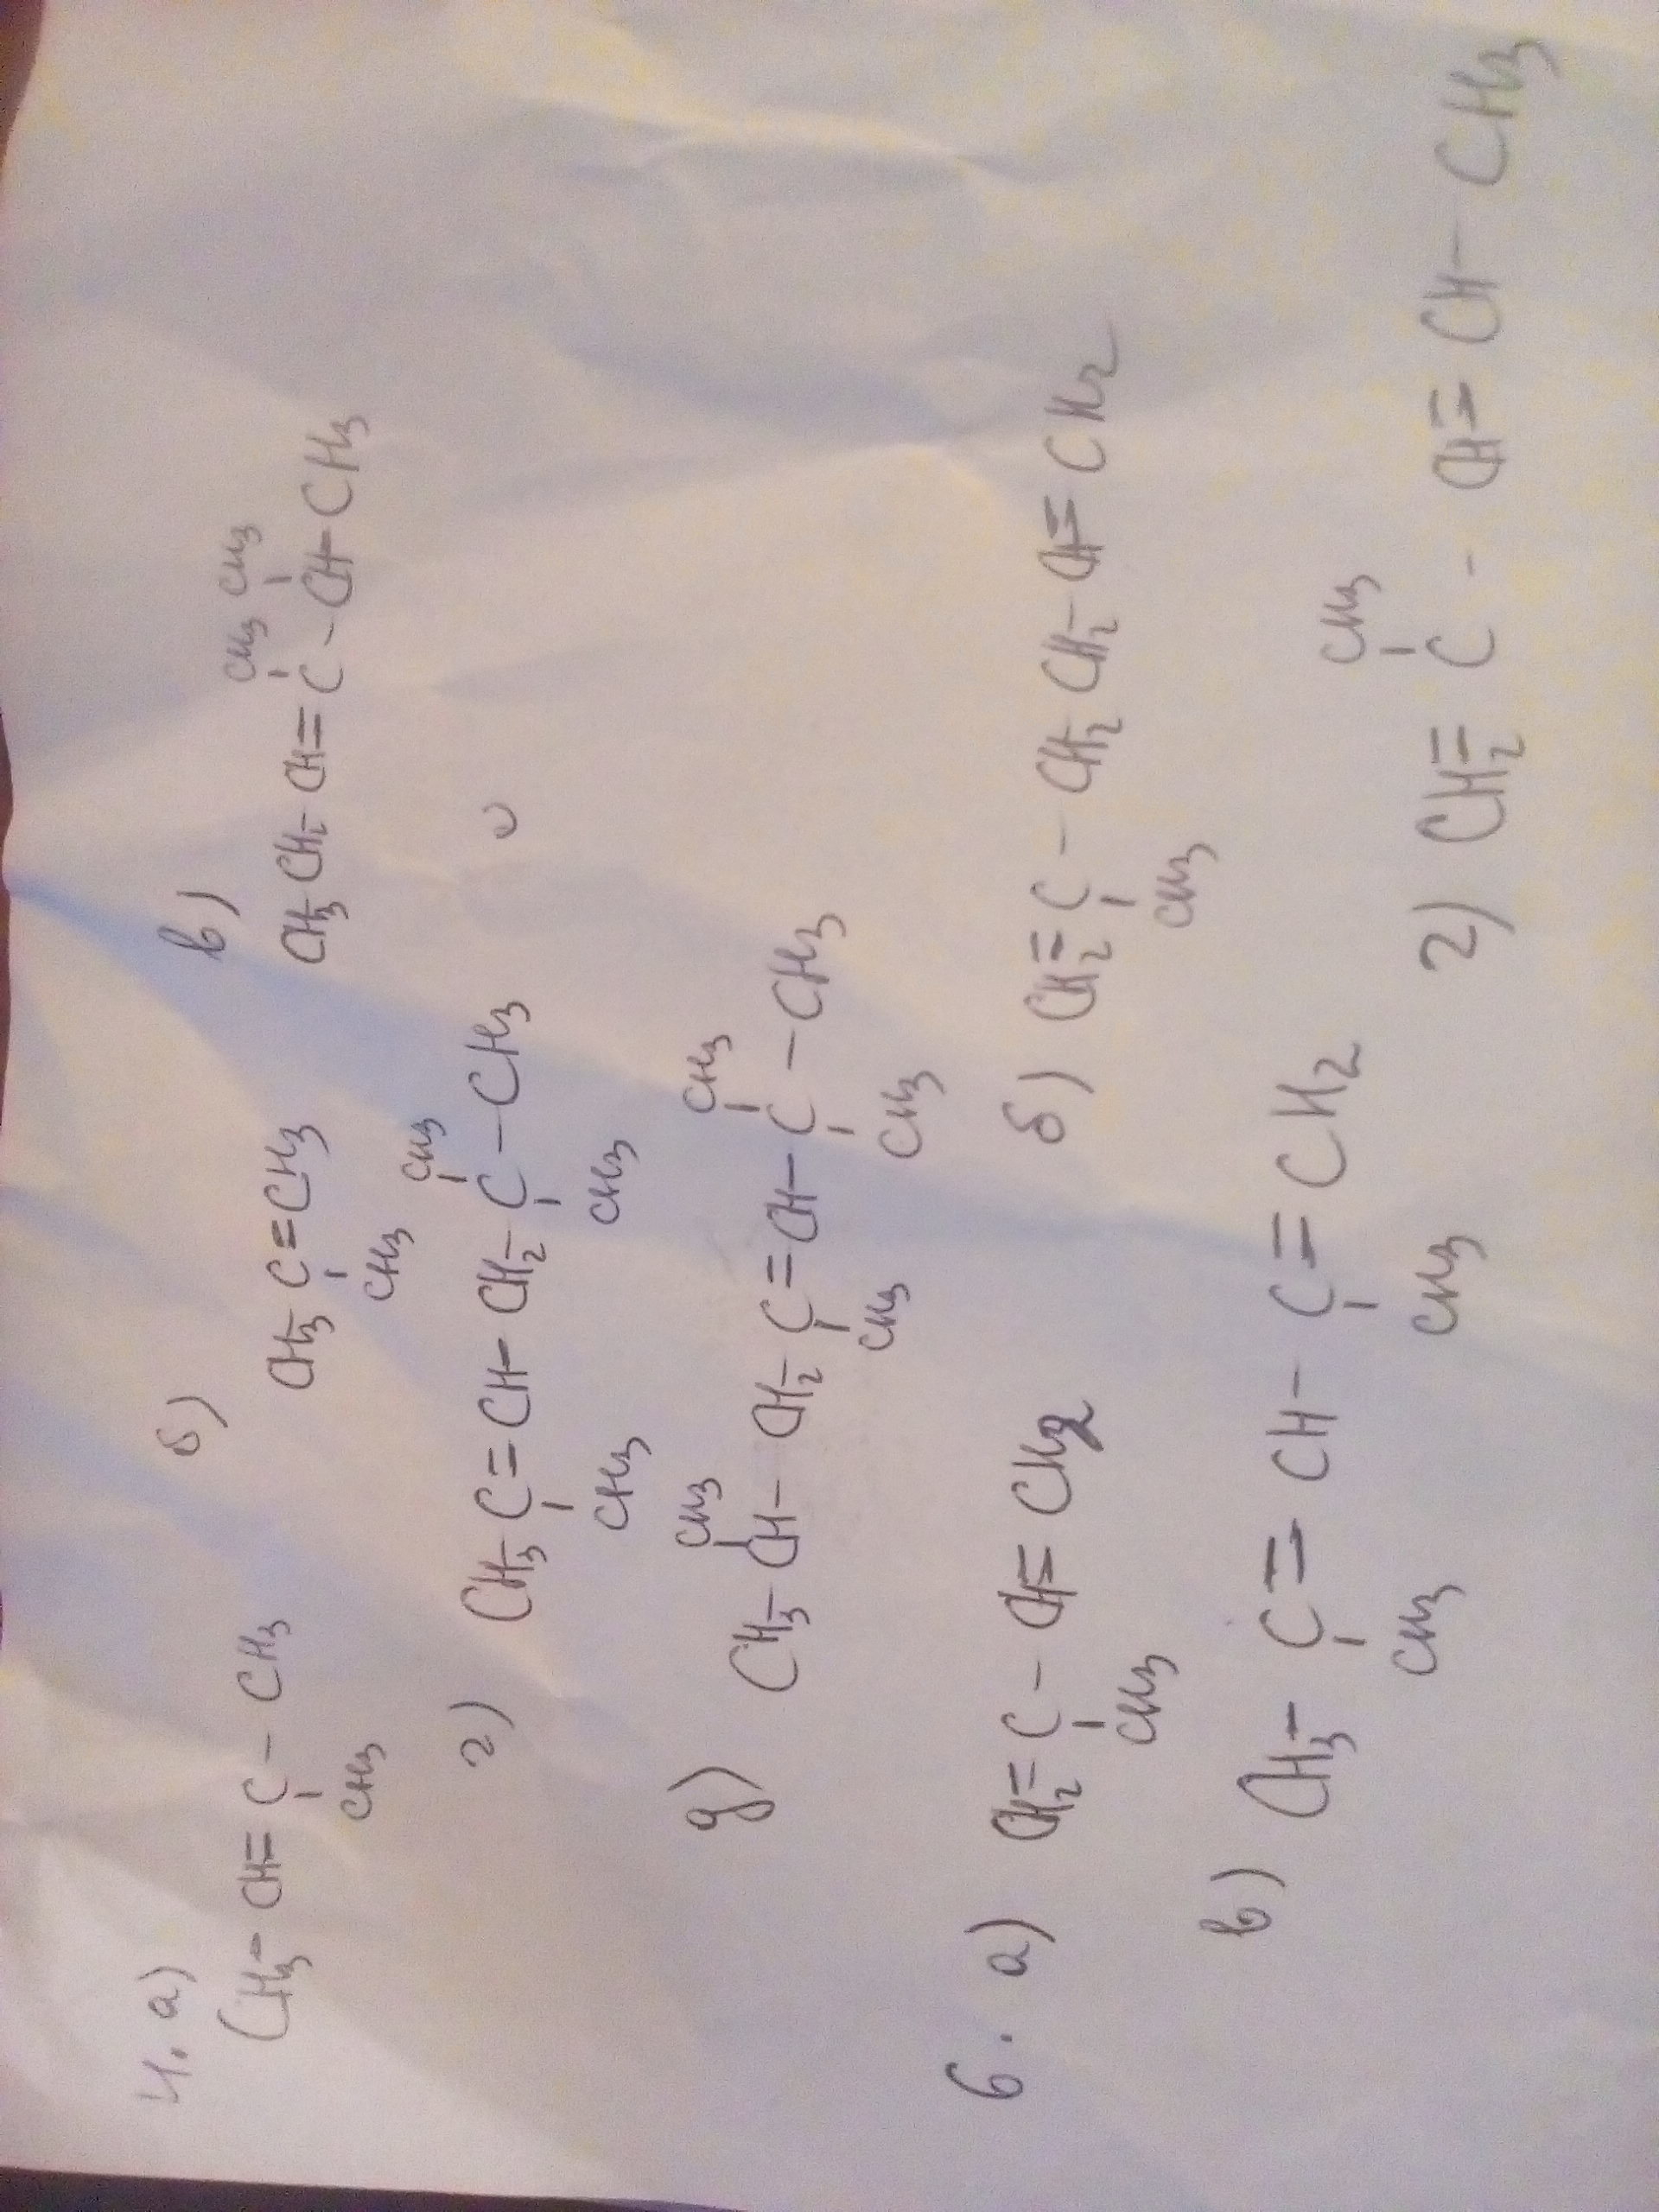 4. а) б) в)
CH₃-CH=C-CH₃ CH₃-C=CH₃ CH₃-CH₂-CH=C-CH-CH₃
CH₃ CH₃ CH₃ CH₃
г) CH₃-C=CH-CH₂-C-CH₃
CH₃ CH₃ CH₃
д) CH₃-CH-CH₂-C=CH-C-CH₃
CH₃ CH₃ CH₃ CH₃
6. а) CH₂=C-CH=CH₂ б) CH₂=C-CH₂ CH₂-CH=CH₂
CH₃ CH₃
в) CH₃-C=CH-C=CH₂ г) CH₂=C-CH=CH-CH₃
CH₃ CH₃ CH₃